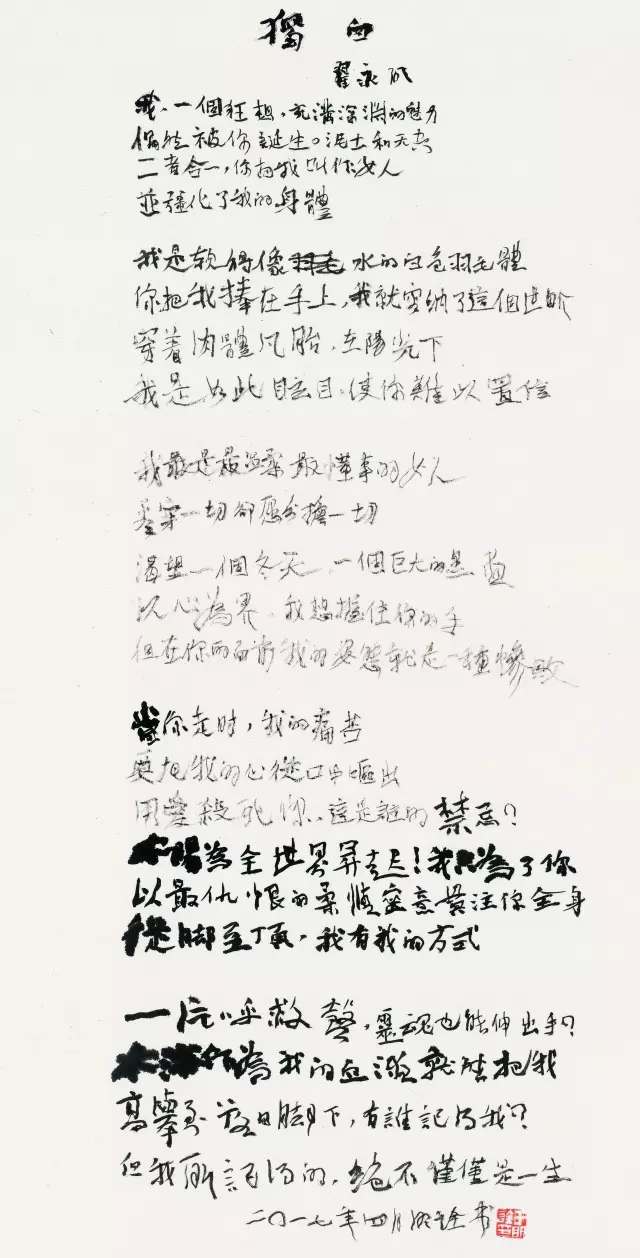 獨白
翟永明
我,一個狂想,充滿深淵的魅力
偶然被你誕生。泥土和天空
二者合一,你把我叫作女人
並強化了我的身體
我是軟得像水的白色羽毛體
你把我捧在手上,我就容納了這個世界
穿着肉體凡胎,在陽光下
我是如此眩目,使你難以置信
我最是最溫柔最懂事的女人
看穿一切卻愿分擔一切
渴望一個冬天,一個巨大的黑夜
以心為界,我想握住你的手
但在你的面前我的姿態就是一種慘敗
當你走时,我的痛苦
要把我的心從口中嘔出
用愛殺死你,這是誰的禁忌?
太陽為全世界昇起!我只為了你
以最仇恨的柔情蜜意貫注你全身
從脚至頂,我有我的方式
一片呼救聲,靈魂也能伸出手?
大海作為我的血液就能把我
高舉到落日脚下,有誰記得我?
但我所記得的,絕不僅僅是一生
二〇一七年四月 書